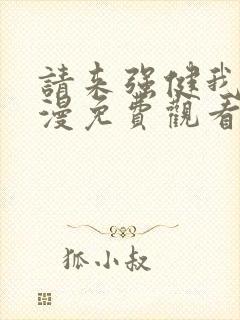 請来强健我
漫免費觀看
狐小叔